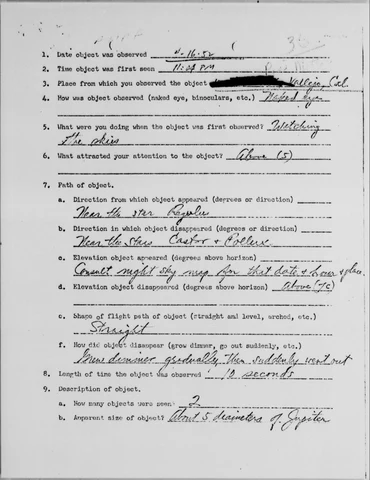 1. Date object was observed 4-16-52
2. Time object was first seen 11:04 PM
3. Place from which you observed the object Vallejo, Cal.
4. How was object observed (naked eye, binoculars, etc.) Naked Eye
5. What were you doing when the object was first observed? Watching
the skies
6. What attracted your attention to the object? Above (5)
7. Path of object.
a. Direction from which object appeared (degrees or direction)
Near the star Regulus
b. Direction in which object disappeared (degrees or direction)
Near the stars Castor & Pollux
c. Elevation object appeared (degrees above horizon)
Consult night sky map for that date & hour & place.
d. Elevation object disappeared (degrees above horizon) Above (7c)
e. Shape of flight path of object (straight and level, arched, etc.)
Straight
f. How did object disappear (grow dimmer, go out suddenly, etc.)
Grew dimmer gradually then suddenly went out
8. Length of time the object was observed 12 seconds
9. Description of object.
a. How many objects were seen 2
b. Apparent size of object? About 5 diameters of Jupiter